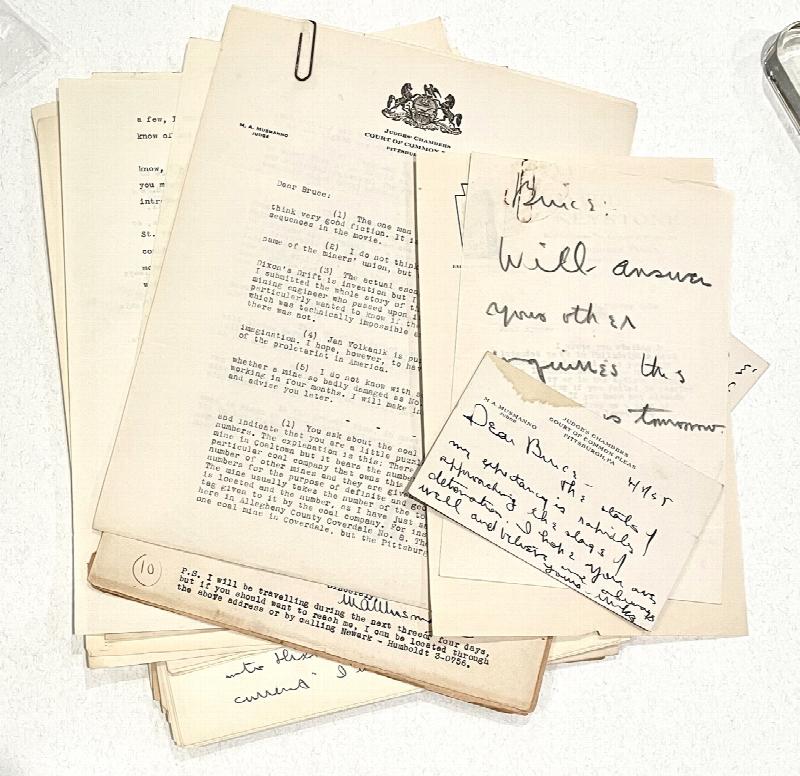 a few, I
know of
know,
you m
intr
St.
co
mo
w
M. A. MUSMANNO
JUDGE
JUDGES' CHAMBERS
COURT OF COMMON
PITTSBUR
Dear Bruce:
(1) The one man
think very good fiction. It i
sequences in the movie.
(2) I do not think
name of the miners' union, but
(3) The actual esca
Dixon's Drift is invention but I
I submitted the whole story of th
mining engineer who passed upon i
particularly wanted to know if the
which was technically impossible a
there was not.
(4) Jan Volkanik is pu
imagination. I hope, however, to hav
of the proletariat in America.
(5) I do not know with
whether a mine so badly damaged as No
working in four months. I will make in
and advise you later.
- - -
(1) You ask about the coal
and indicate that you are a little puzzl
numbers. The explanation is this: There
mine in Coaltown but it bears the number
particular coal company that owns this
number of other mines and they are give
numbers for the purpose of definite and geo
The mine usually takes the number of the to
is located and the number, as I have just sa
tag given to it by the coal company. For ins
here in Allegheny County Coverdale No. 8. The
one coal mine in Coverdale, but the Pittsburg
Bruce:
Will answer
your other
inquiries this
is tomorrow.
M. A. MUSMANNO
JUDGE
JUDGES' CHAMBERS
COURT OF COMMON PLEAS
PITTSBURGH, PA.
4/9/35
Dear Bruce -
The state of
my expectancy is rapidly
approaching the stage of
detonation. I hope you are
well and believe me always
yours
10
P.S. I will be travelling during the next three - four days,
but if you should want to reach me, I can be located through
the above address or by calling Newark - Humboldt 3-0756.
current" I